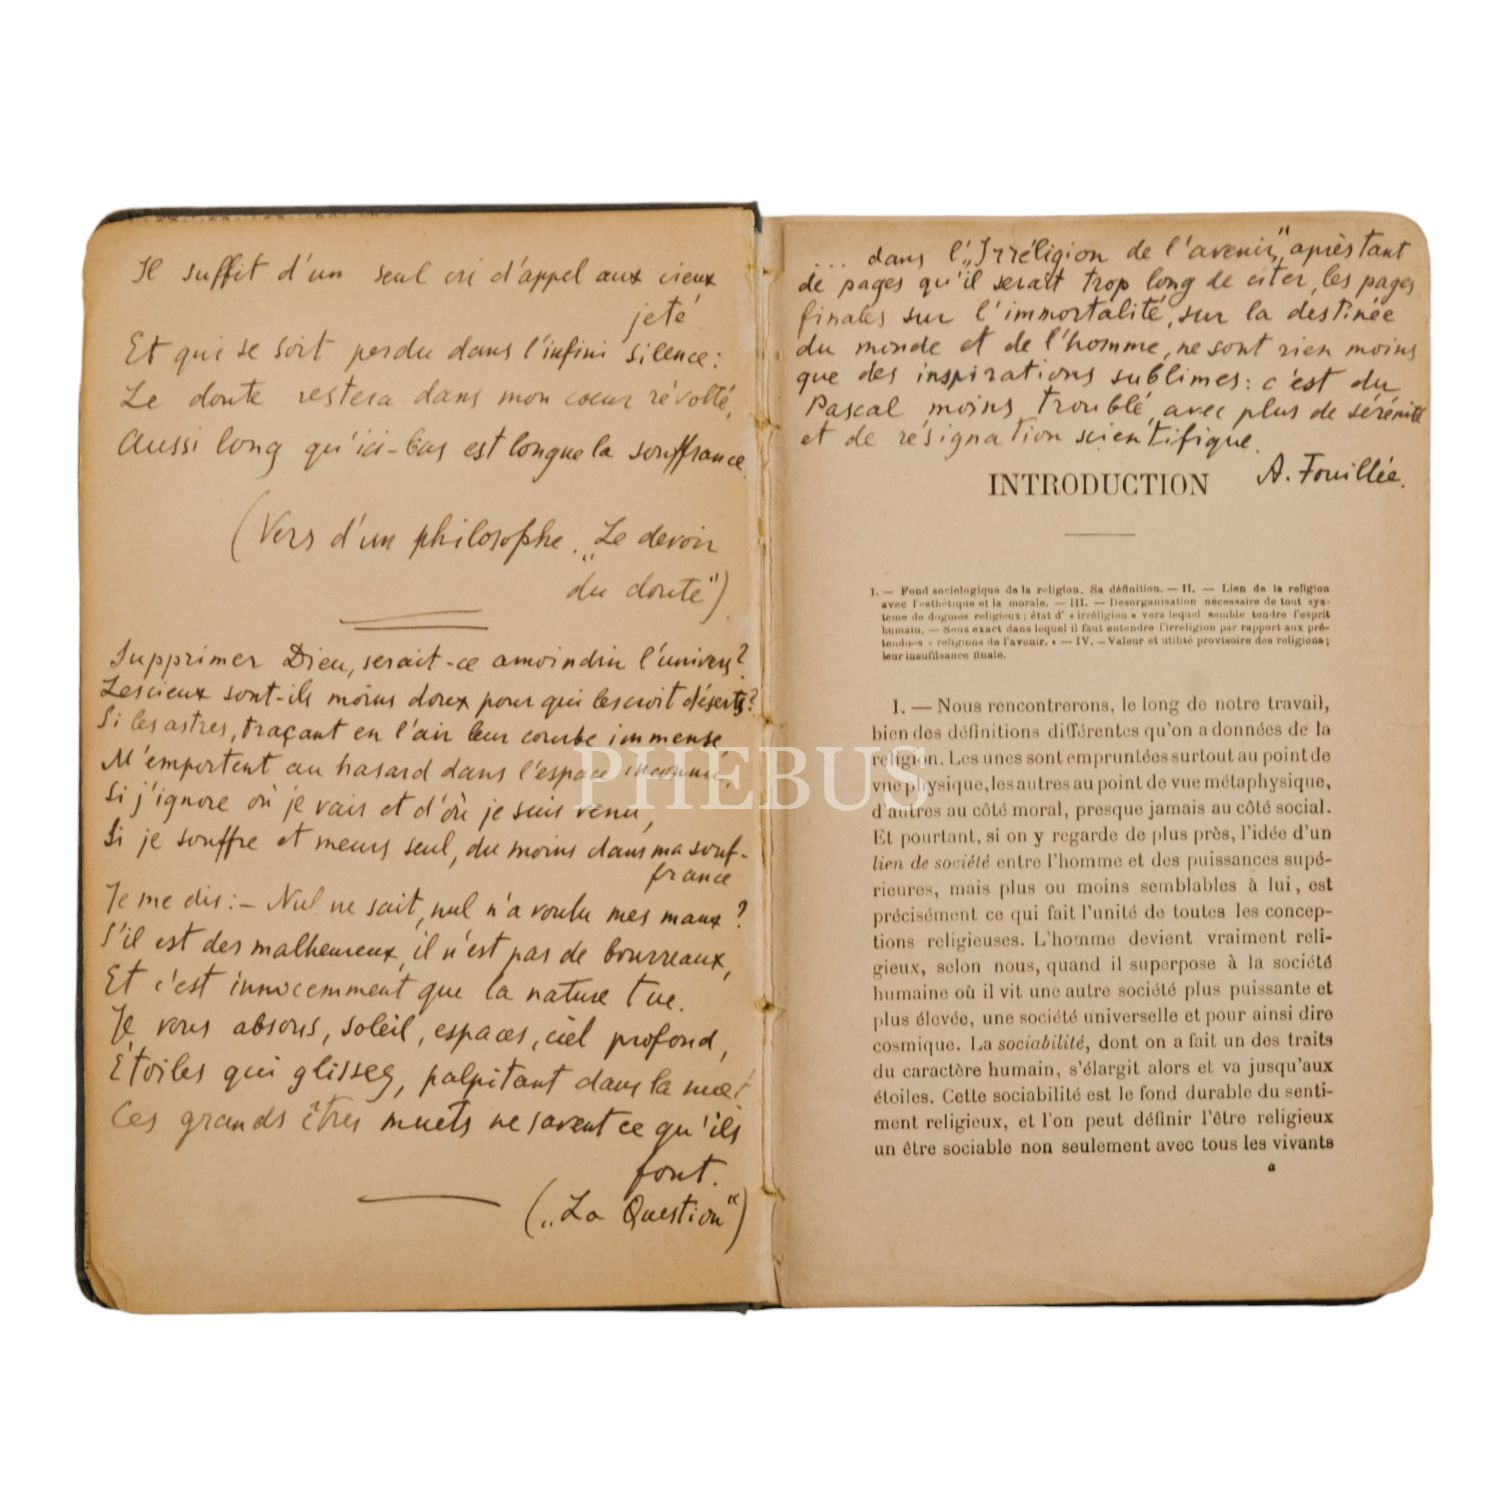 Il suffit d'un seul cri d'appel aux cieux
jeté
Et qui se soit perdu dans l'infini silence:
Le doute restera dans mon coeur révolté,
Aussi long qu'ici-bas est longue la souffrance.
(Vers d'un philosophe. „Le devoir
du doute")
Supprimer Dieu, serait-ce amoindrir l'univers?
Les cieux sont-ils moins doux pour qui les croit déserts?
Si les astres, traçant en l'air leur courbe immense,
M'emportent au hasard dans l'espace inconnu,
Si j'ignore où je vais et d'où je suis venu,
Si je souffre et meurs seul, du moins dans ma souf-
france
Je me dis: – Nul ne sait, nul n'a voulu mes maux?
S'il est des malheureux, il n'est pas de bourreaux,
Et c'est innocemment que la nature tue.
Je vous absous, soleil, espaces, ciel profond,
Étoiles qui glissez, palpitant dans la
Ces grands êtres muets ne savent ce qu'ils
font.
(„La Question")
... dans l'„Irréligion de l'avenir", après tant
de pages qu'il serait trop long de citer, les pages
finales sur l'immortalité, sur la destinée
du monde et de l'homme, ne sont rien moins
que des inspirations sublimes: c'est du
Pascal moins troublé, avec plus de sérénité
et de résignation scientifique.
A. Fouillée.
INTRODUCTION
I. — Fond sociologique de la religion. Sa définition. — II. — Lien de la religion
avec l'esthétique et la morale. — III. — Désorganisation nécessaire de tout sys-
tème de dogmes religieux; état d' « irréligion » vers lequel semble tendre l'esprit
humain. — Sens exact dans lequel il faut entendre l'irréligion par rapport aux pré-
tendues « religions de l'avenir. » — IV. — Valeur et utilité provisoire des religions;
leur insuffisance finale.
I. — Nous rencontrerons, le long de notre travail,
bien des définitions différentes qu'on a données de la
religion. Les unes sont empruntées surtout au point de
vue physique, les autres au point de vue métaphysique,
d'autres au côté moral, presque jamais au côté social.
Et pourtant, si on y regarde de plus près, l'idée d'un
lien de société entre l'homme et des puissances supé-
rieures, mais plus ou moins semblables à lui, est
précisément ce qui fait l'unité de toutes les concep-
tions religieuses. L'homme devient vraiment reli-
gieux, selon nous, quand il superpose à la société
humaine où il vit une autre société plus puissante et
plus élevée, une société universelle et pour ainsi dire
cosmique. La sociabilité, dont on a fait un des traits
du caractère humain, s'élargit alors et va jusqu'aux
étoiles. Cette sociabilité est le fond durable du senti-
ment religieux, et l'on peut définir l'être religieux
un être sociable non seulement avec tous les vivants
a
PHEBUS